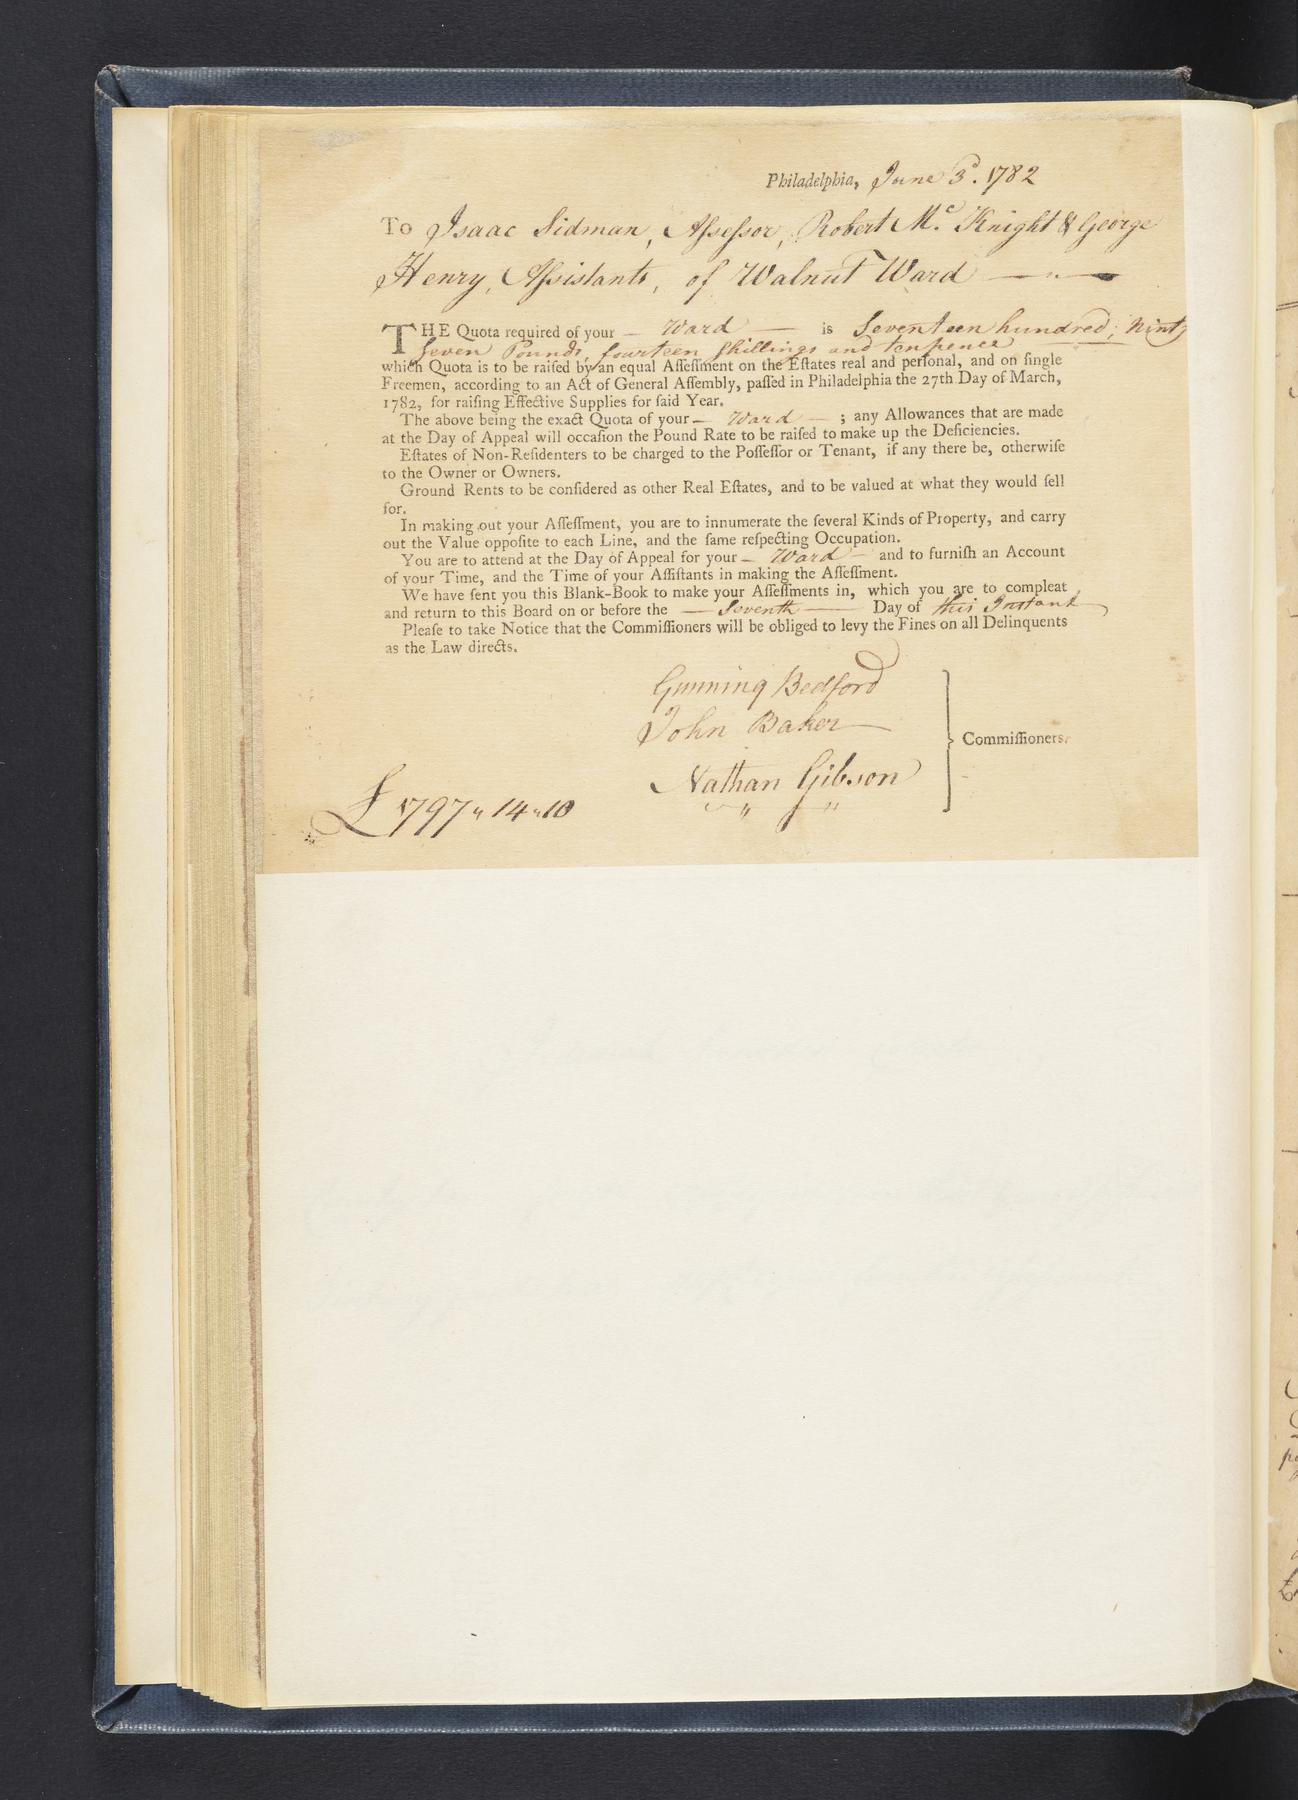 Philadelphia, June 3d. 1782
To Isaac Sidman, Aſseſsor, Robert Mc. Knight & George
Henry, Aſsistants, of Walnut Ward
THE Quota required of your — Ward — is Seventeen hundred, Ninty
Seven Pounds, fourteen Shillings and tenpence
which Quota is to be raiſed by an equal Aſſeſſment on the Eſtates real and perſonal, and on ſingle
Freemen, according to an Act of General Aſſembly, paſſed in Philadelphia the 27th Day of March,
1782, for raiſing Effective Supplies for ſaid Year.
The above being the exact Quota of your — Ward — ; any Allowances that are made
at the Day of Appeal will occaſion the Pound Rate to be raiſed to make up the Deficiencies.
Eſtates of Non-Reſidenters to be charged to the Poſſeſſor or Tenant, if any there be, otherwiſe
to the Owner or Owners.
Ground Rents to be conſidered as other Real Eſtates, and to be valued at what they would ſell
for.
In making out your Aſſeſſment, you are to innumerate the ſeveral Kinds of Property, and carry
out the Value oppoſite to each Line, and the ſame reſpecting Occupation.
You are to attend at the Day of Appeal for your — Ward — and to furniſh an Account
of your Time, and the Time of your Aſſiſtants in making the Aſſeſſment.
We have ſent you this Blank-Book to make your Aſſeſſments in, which you are to compleat
and return to this Board on or before the — Seventh — Day of this Instant
Pleaſe to take Notice that the Commiſſioners will be obliged to levy the Fines on all Delinquents
as the Law directs.
Gunning Bedford
John Baker
Commiſſioners.
Nathan Gibson
£1797 " 14 " 10